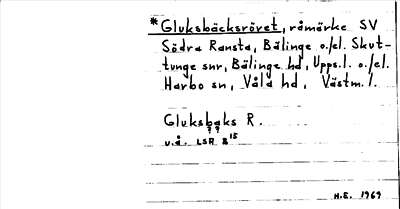 *Gluksbäcksrövet, råmärke SV
Södra Ransta, Bälinge o./el. Skut-
tunge snr, Bälinge hd, Upps.l. o./el.
Harbo sn, Våla hd, Västm.l.
Gluksbaks R.
? ?
u.å. LSA B 15
H.E. 1969